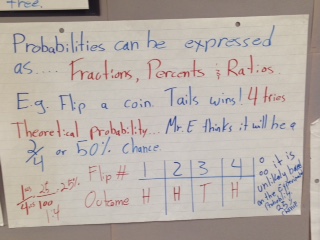 tree.
Probabilities can be expressed
as.... Fractions, Percents & Ratios.
E.g. Flip a coin. Tails wins! 4 tries
Theoretical Probability... Mr. E thinks it will be a
2/4 or 50% chance.
Flip # 1 2 3 4
Outcome H H T H
1/4 = 25/100 = 25%
1:4
∴ it is
unlikely based
on the experimental